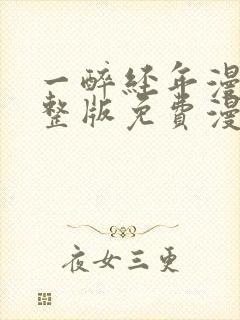 一醉经年漫
整版免费漫
夜女三更